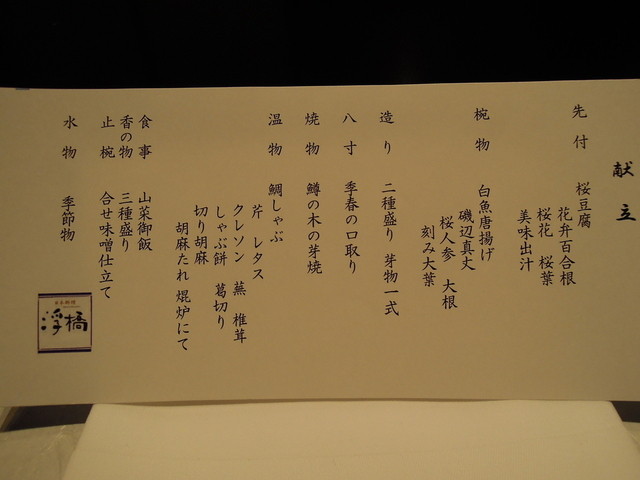 献立
先付 桜豆腐
花弁百合根
桜花 桜葉
美味出汁
椀物 白魚唐揚げ
磯辺真丈
桜人参 大根
刻み大葉
造り 二種盛り 芽物一式
八寸 季春の口取り
焼物 鱒の木の芽焼
温物 鯛しゃぶ
芹 レタス
クレソン 蕪 椎茸
しゃぶ餅 葛切り
切り胡麻
胡麻たれ 焜炉にて
食事 山菜御飯
香の物 三種盛り
止椀 合せ味噌仕立て
水物 季節物
浮橋